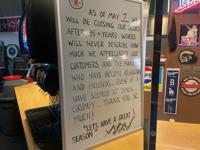 AS OF MAY 7 WE
WILL BE CLOSING OUR DOORS
AFTER 35+ YEARS. WORDS
WILL NEVER DESCRIBE HOW
MUCH WE APPRECIATED OUR
CUSTOMERS AND THE MANY
WHO HAVE BECOME REGULARS
AND FRIENDS. EVEN IF I
HAVE SEEMED AT TIMES A
GRUMPY... THANK YOU SO
MUCH!
"LETS HAVE A GREAT
SEASON